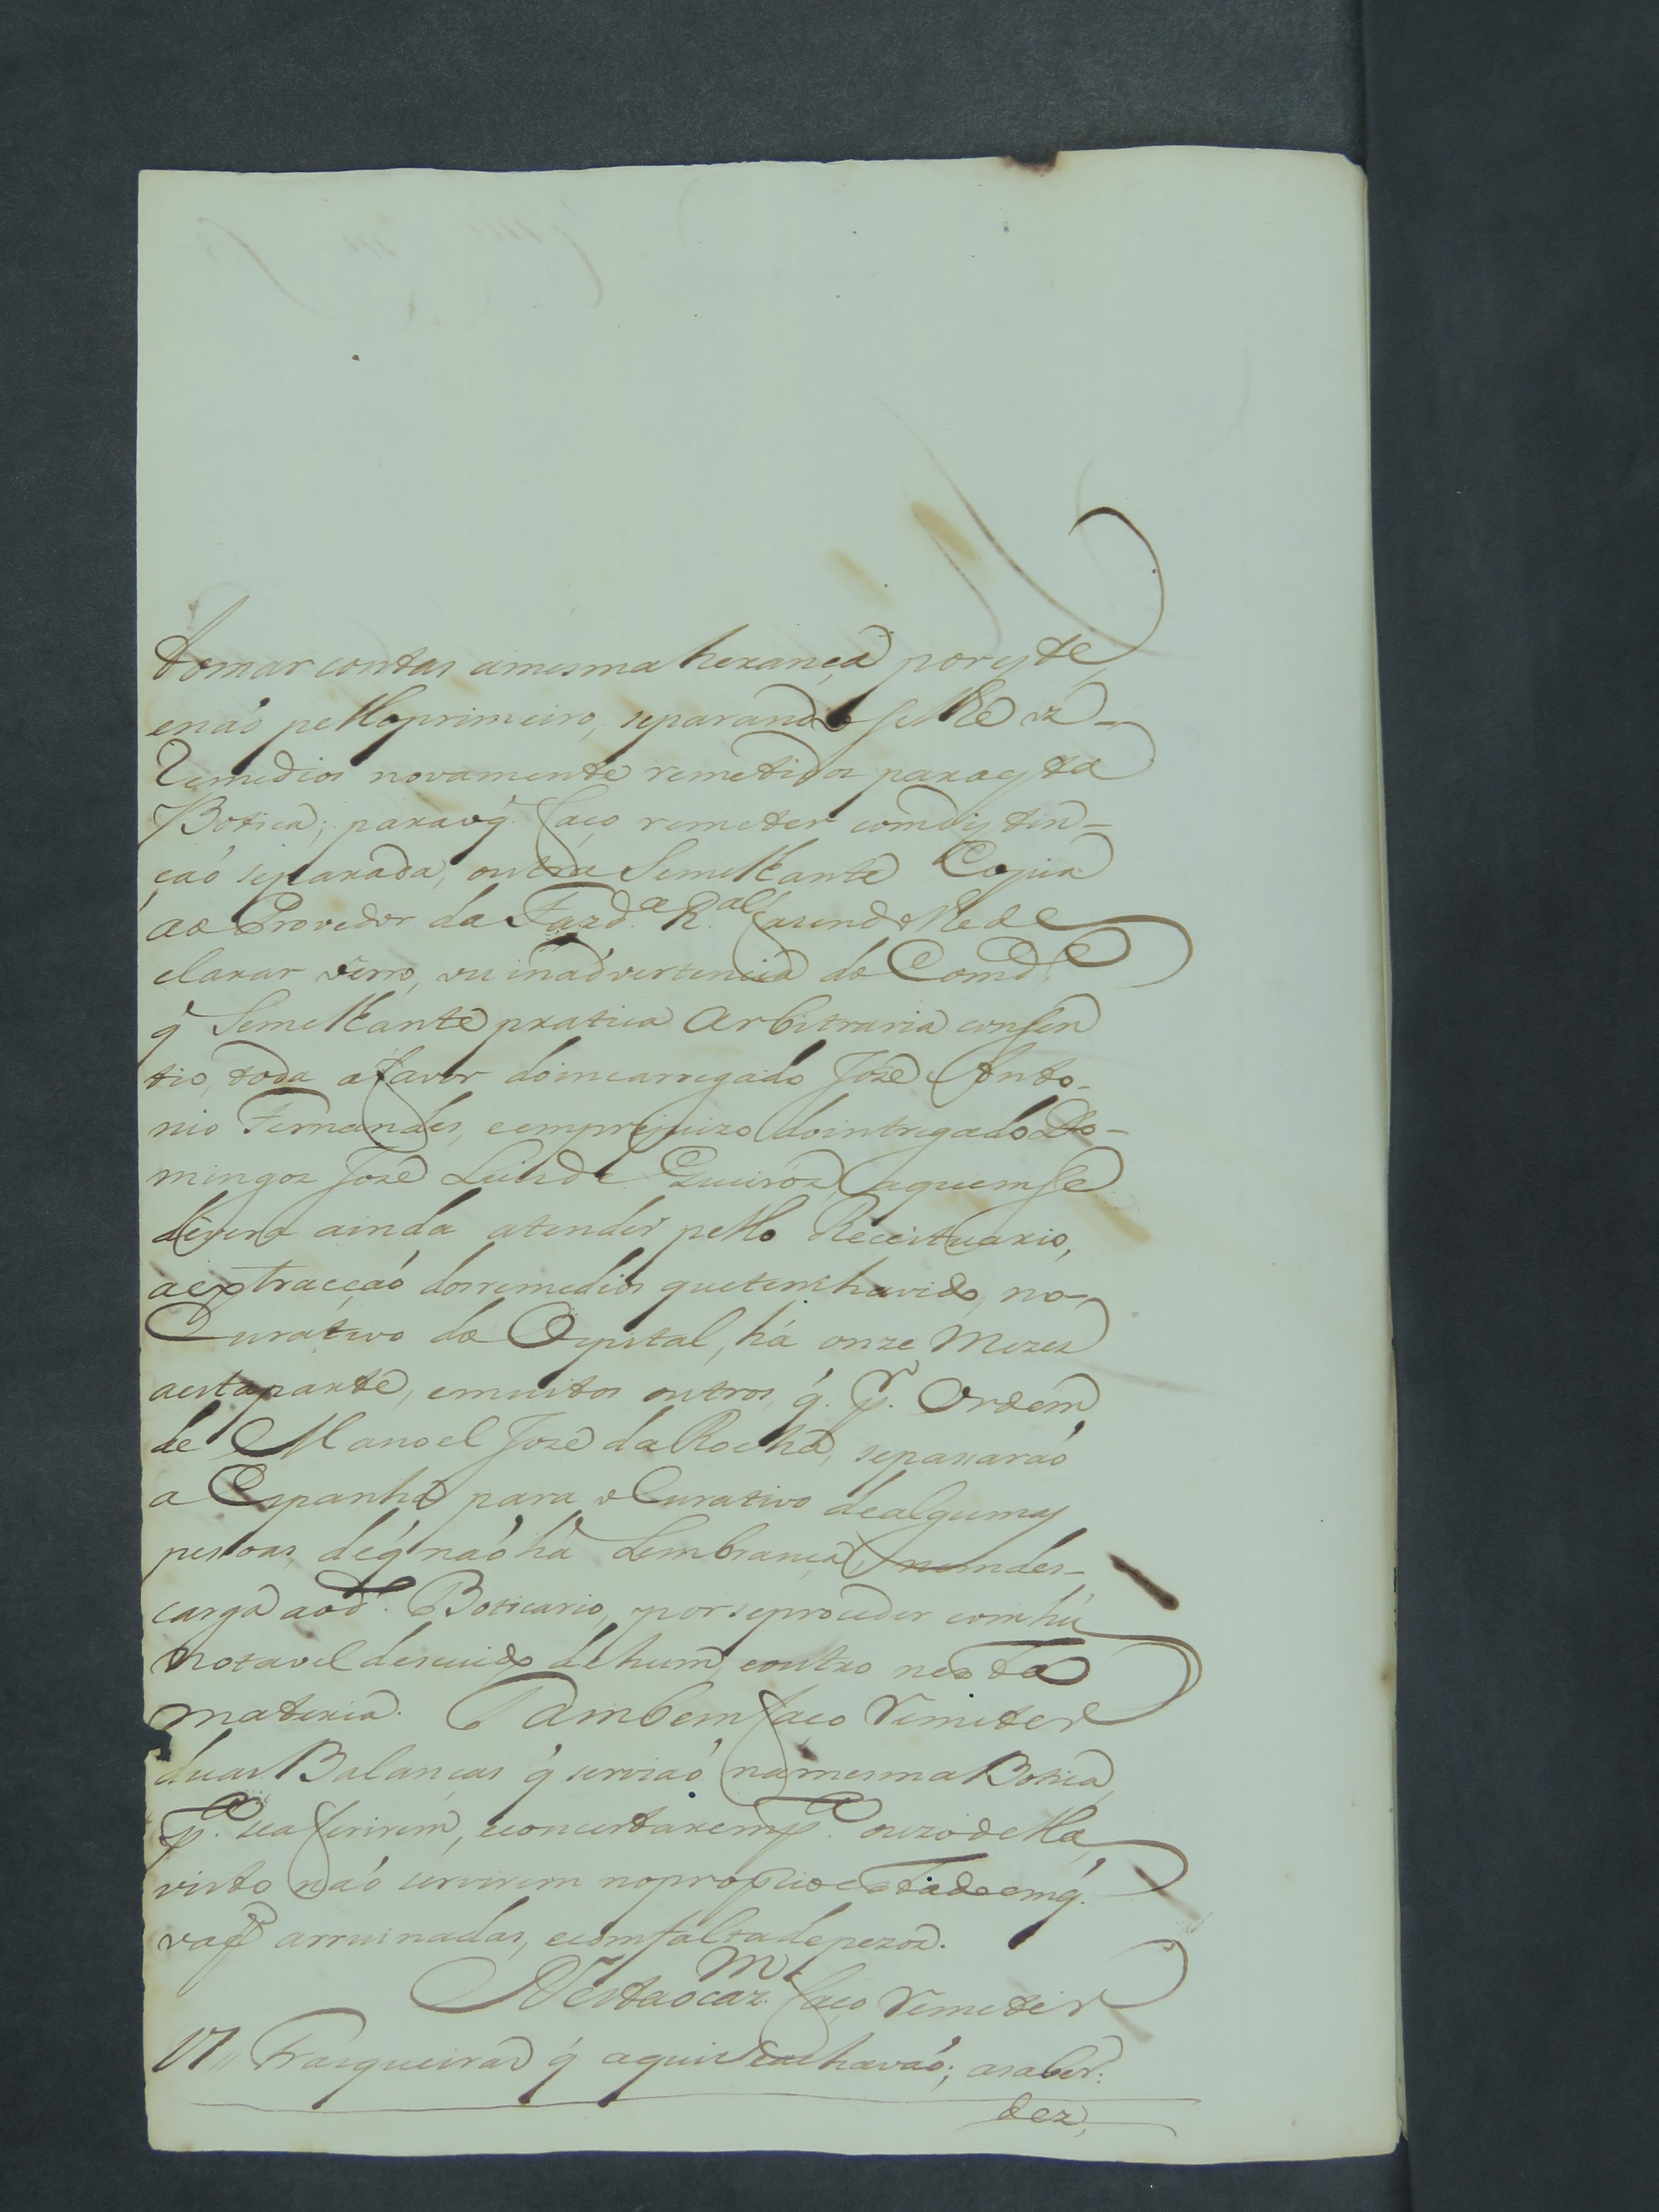 tomar contas amesma herança por este,
enaó pelloprimeiro, separandoselhe os
Remedios novamente remetidos paraesta
Botica; paraoq̃ faço remeter comdistin-
çaó separada, outra Semelhante Copia
ao Provedor da Fazd.ª R.al fazendolhede
clarar oerro, ou inadvertencia do Comd.e
q̃ Semelhante pratica Arbitraria consen
tio, toda afavor doincarregado Jozé Anto-
nio Fernandes, eemprejuizo dointregado Do-
mingos Jozé Luisde Queiróz, aquemse
devera ainda atender pello Receituario,
aextracçaó dosremedios quetemhavido, no
Curativo do Ospital, há onze Mezes
aestaparte, emuitos outros, q̃. p.r Ordem
de Manoel Jozé daRocha, separaraó
a Espanha para oCurativo dealgumas
pessoas, deq̃ naó há Lembrança, nemdes-
carga aod.º Boticario, porseproceder comhũ
notavel descuido dehum, eoutro nesta
materia. Tambemfaço Remeter
duas Balanças q̃ serviaó namesmaBotica,
p.ª seaferirem, econcertaremp.ª ouzodella,
visto naó servirem noproprioestadoemq̃.
vaõ arruinadas, ecomfaltadepezos.
Nestaocaz.m faço Remeter
17,, Frasqueiras q̃ aquiseachavaó; asaber:
dez,